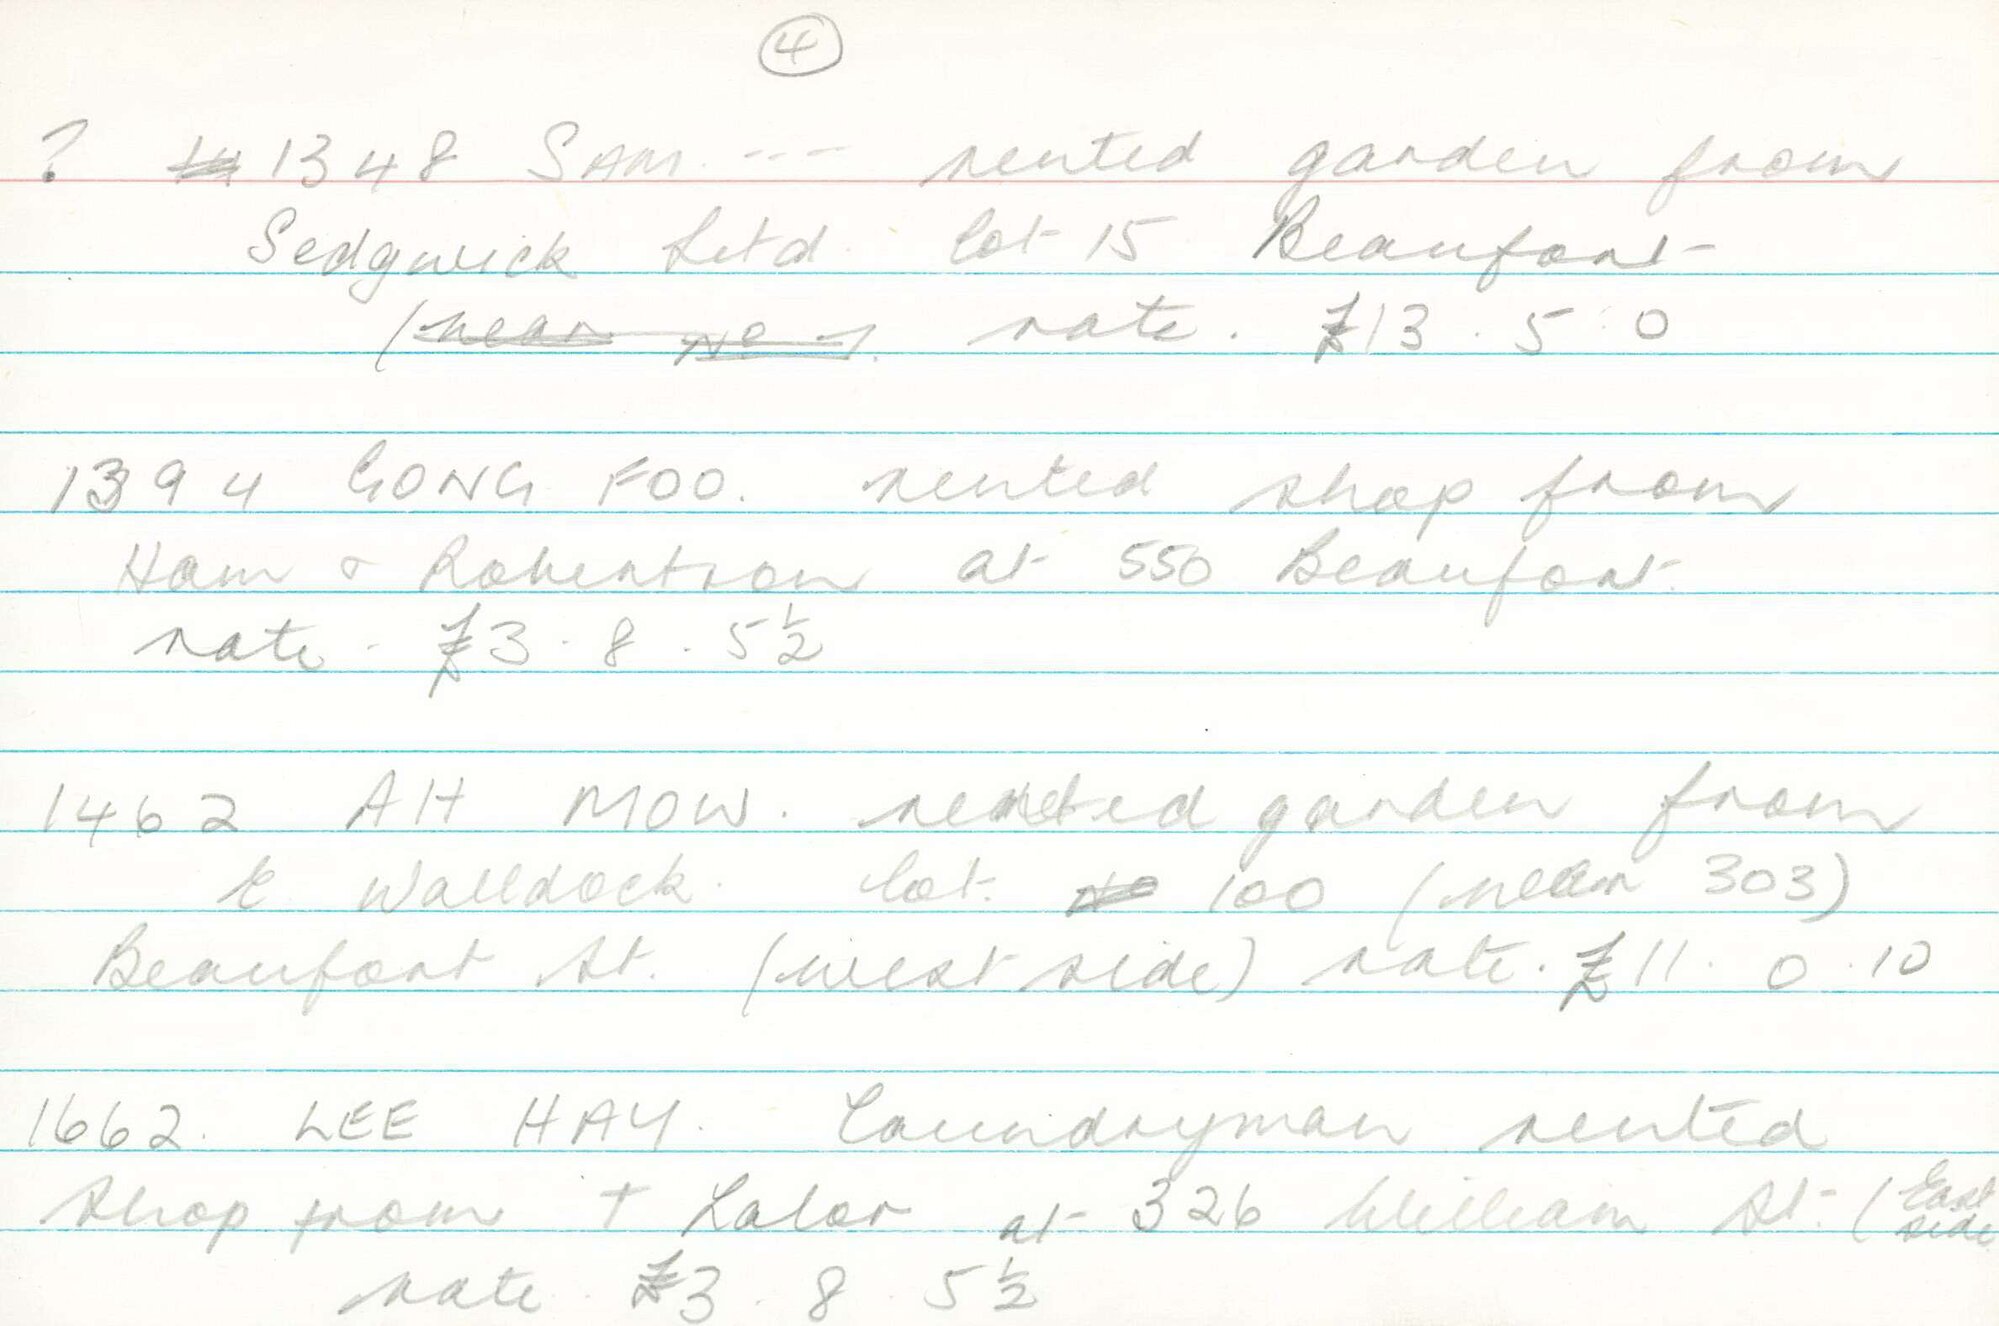 4
? 1348 SAM. --- rented garden from
Sedgwick Ltd. lot 15 Beaufort
(near No ). rate. £13. 5. 0
1394 GONG FOO. rented shop from
Ham & Robertson at 550 Beaufort.
rate. £3. 8. 5½
1462 AH MOW. rented garden from
E Walldock. lot. No 100 (near 303)
Beaufort St. (west side) rate. £11. 0. 10
1662. LEE HAY. Laundryman rented
shop from T Lalor at 326 William St. (East
side
rate £3. 8 5½